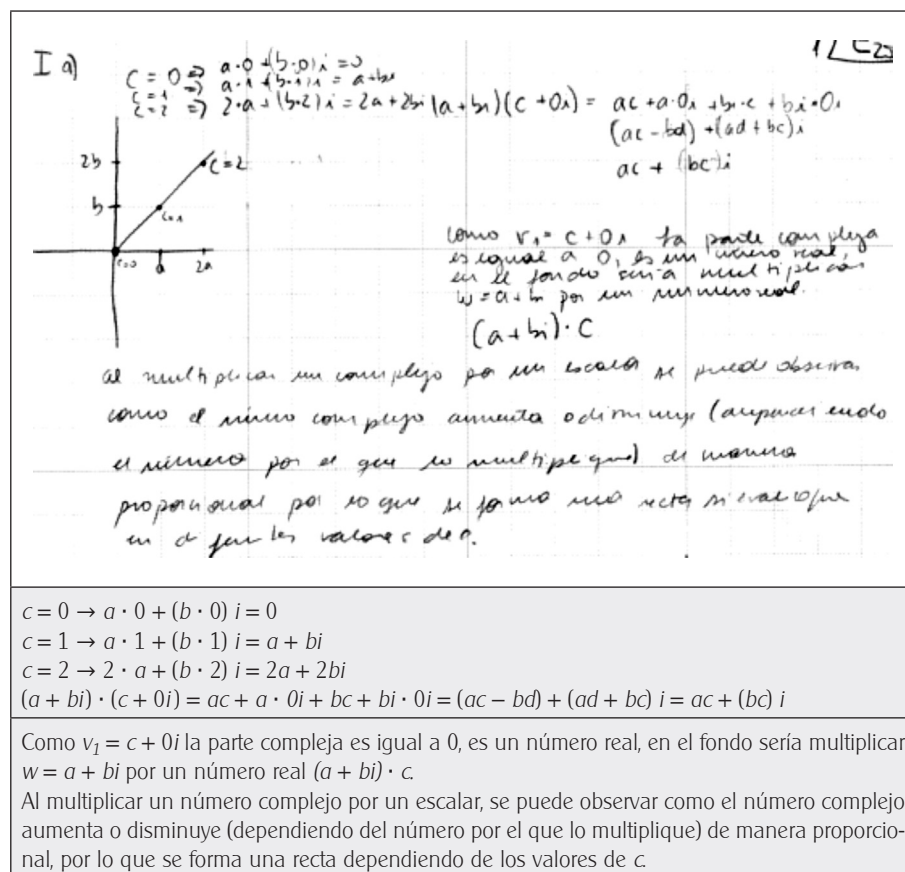 I a)
C = 0 => a·0 + (b·0)i = 0
C = 1 => a·1 + (b·1)i = a+bi
C = 2 => 2·a + (b·2)i = 2a + 2bi (a+bi)(c+0i) = ac + a·0i + bi·c + bi·0i
(ac - bd) + (ad + bc)i
ac + (bc)i
2b
c=2
b
c=1
c=0
a
2a
como v₁ = c + 0i la parte compleja
es igual a 0, es un número real,
en el fondo sería multiplicar
w = a + bi por un número real.
(a+bi)·C
al multiplicar un complejo por un escalar se puede observar
como el número complejo aumenta o disminuye
el número por el que lo multiplique) de manera
proporcional por lo que se forma una recta
en valores de c.
c = 0 → a · 0 + (b · 0) i = 0
c = 1 → a · 1 + (b · 1) i = a + bi
c = 2 → 2 · a + (b · 2) i = 2a + 2bi
(a + bi) · (c + 0i) = ac + a · 0i + bc + bi · 0i = (ac − bd) + (ad + bc) i = ac + (bc) i
Como v₁ = c + 0i la parte compleja es igual a 0, es un número real, en el fondo sería multiplicar
w = a + bi por un número real (a + bi) · c.
Al multiplicar un número complejo por un escalar, se puede observar como el número complejo
aumenta o disminuye (dependiendo del número por el que lo multiplique) de manera proporcio-
nal, por lo que se forma una recta dependiendo de los valores de c.